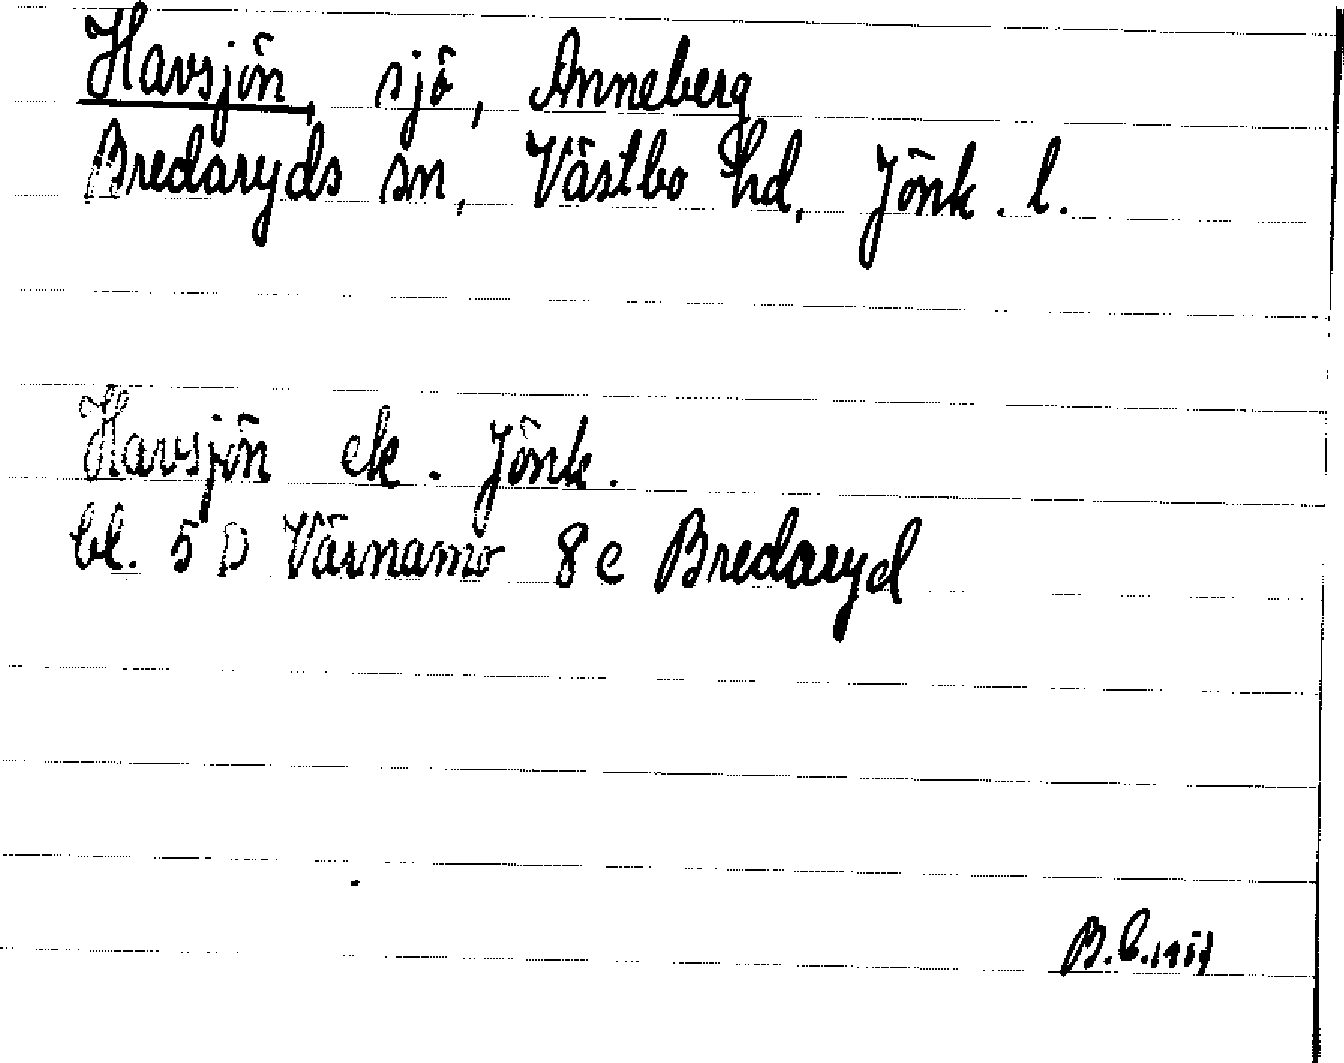 Havsjön, sjö, Anneberg
Bredaryds sn, Västbo hd, Jönk. l.
Havsjön ek. Jönk.
bl. 5 D Värnamo 8 c Bredaryd